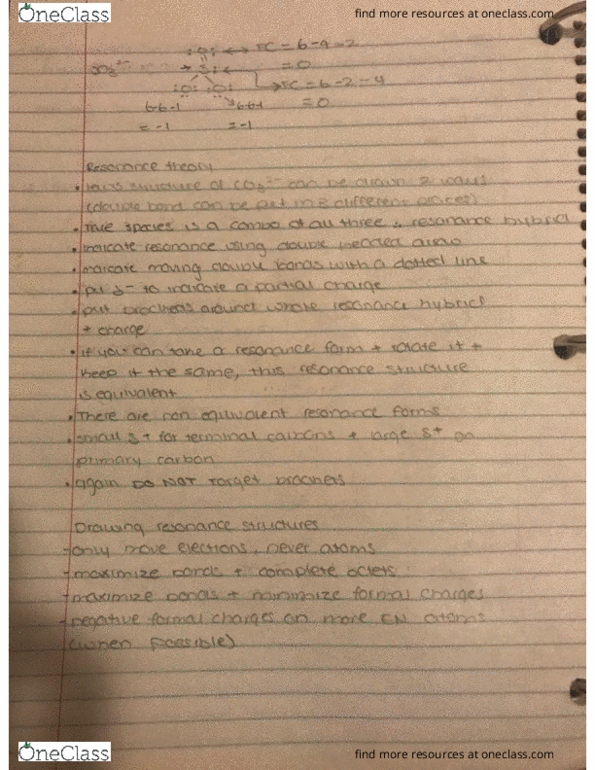 OneClass
find more resources at oneclass.com
:O: ↔ FC = 6-4=2
= 0
:S:
FC = 6-2-4
= 0
:O: :O:
6-6-1
6-6-1
= -1
= -1
Resonance theory
• lewis structure of CO3 2- can be drawn 2 ways
(double bond can be put in 3 different places)
• true species is a combo of all three ∴ resonance hybrid
• indicate resonance using double headed arrow
• indicate moving double bonds with a dotted line
• put δ- to indicate a partial charge
• put brackets around whole resonance hybrid
+ charge
• if you can take a resonance form + rotate it +
keep it the same, this resonance structure
is equivalent
• There are non equivalent resonance forms
• small δ+ for terminal carbons + large δ+ on
primary carbon
• again DO NOT forget brackets
Drawing resonance structures
- only move electrons, never atoms
- maximize bonds + complete octets
- maximize bonds + minimize formal charges
- negative formal charges on more EN atoms
(when possible)
OneClass
find more resources at oneclass.com